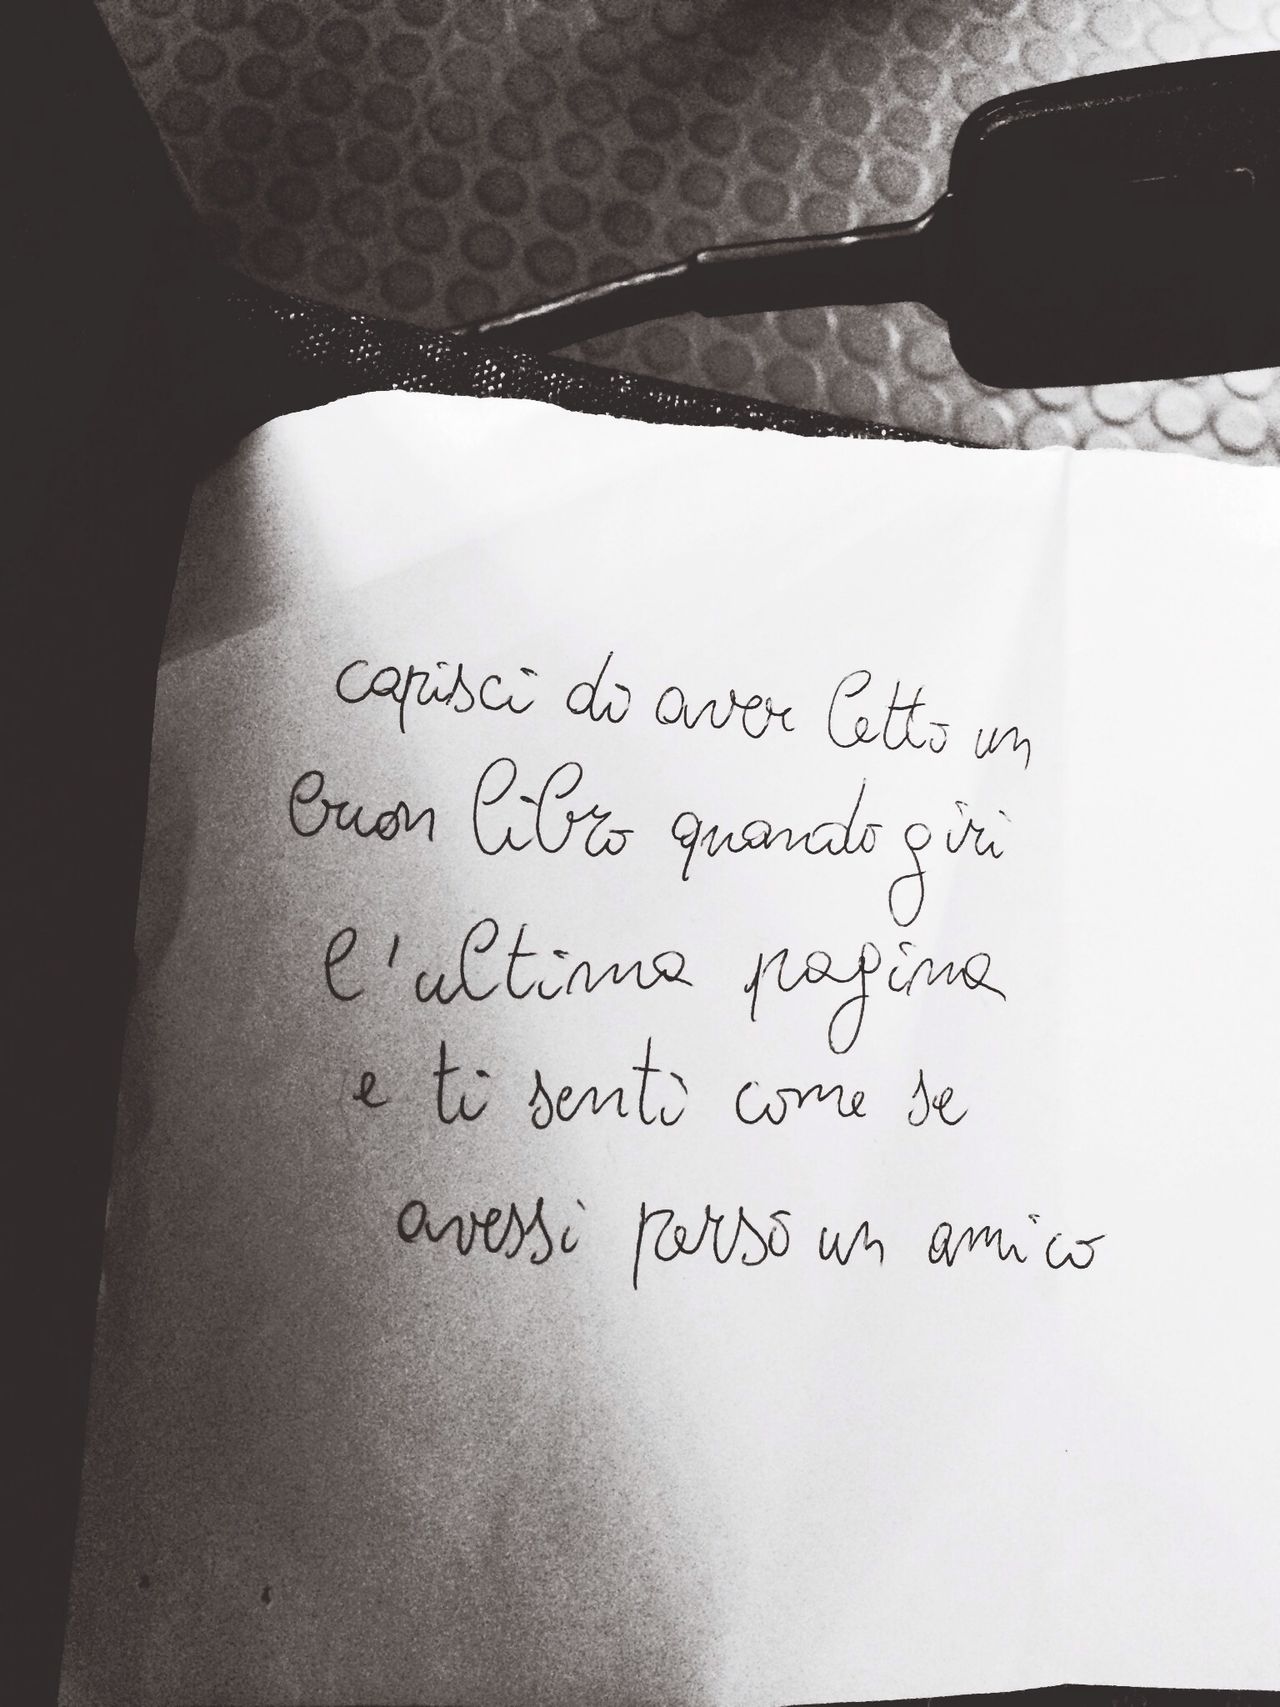 capisci di aver letto un
buon libro quando giri
l'ultima pagina
e ti senti come se
avessi perso un amico